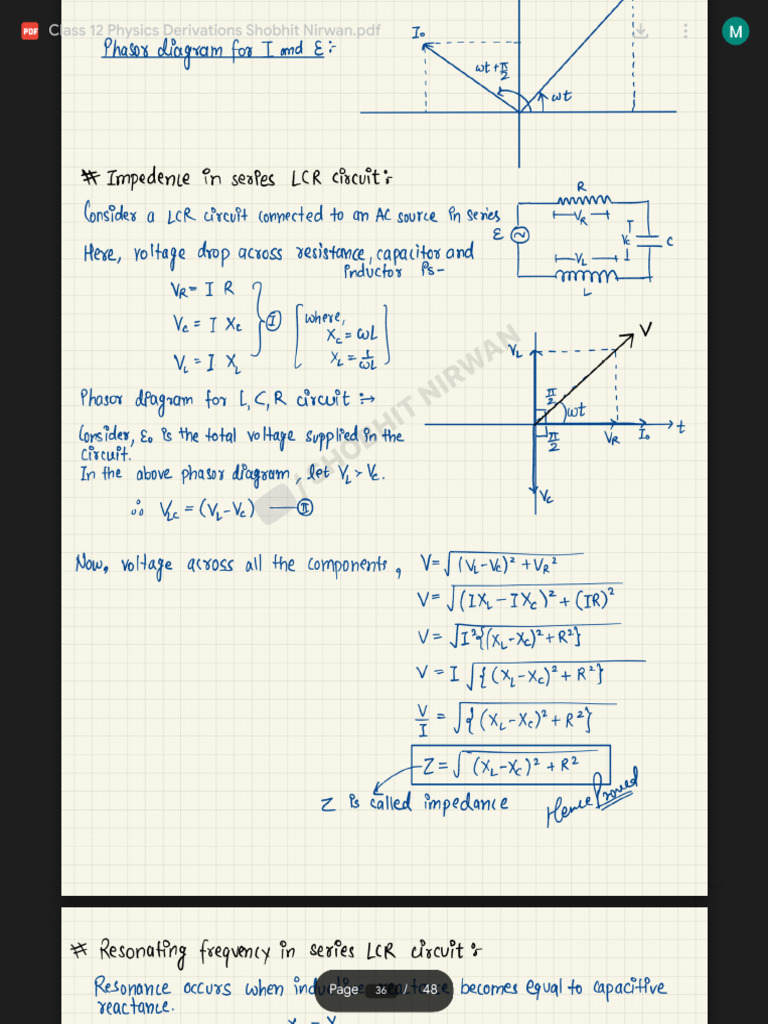 PDF Class 12 Physics Derivations Shobhit Nirwan.pdf M
Phasor diagram for I and Ɛ:-
I₀
ωt+π/2
ωt
# Impedence in series LCR circuit:-
Consider a LCR circuit connected to an AC source in series
Here, voltage drop across resistance, capacitor and
inductor is-
R
V_R
Ɛ
V_C
C
V_L
L
V_R = I R
V_C = I X_C
V_L = I X_L
Ⓘ
[where,
X_C = ωL
X_L = 1/ωL]
Phasor diagram for L, C, R circuit :→
Consider, Ɛ₀ is the total voltage supplied in the
circuit.
In the above phasor diagram, let V_L > V_C.
∴ V_LC = (V_L-V_C) — Ⓘⓘ
V
V_L
π/2
ωt
π/2
V_R
I₀
t
V_C
/ SHOBHIT NIRWAN
Now, voltage across all the components, V = √((V_L-V_C)² + V_R²)
V = √((IX_L - IX_C)² + (IR)²)
V = √(I²{(X_L-X_C)² + R²})
V = I √({(X_L-X_C)² + R²})
V/I = √({(X_L-X_C)² + R²})
Z = √((X_L-X_C)² + R²)
Z is called impedance
Hence Proved
# Resonating frequency in series LCR circuit:-
Resonance occurs when becomes equal to capacitive
reactance.
Page 36 / 48